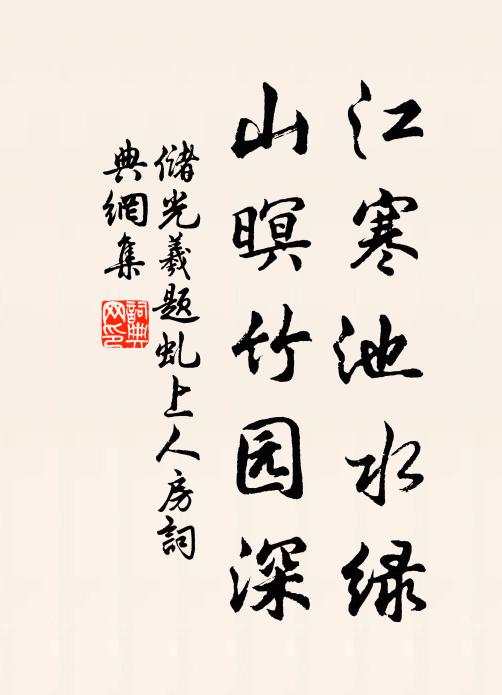 江寒池水绿
山暝竹园深
储光羲题虬上人房詞
典網集
詞典
网印